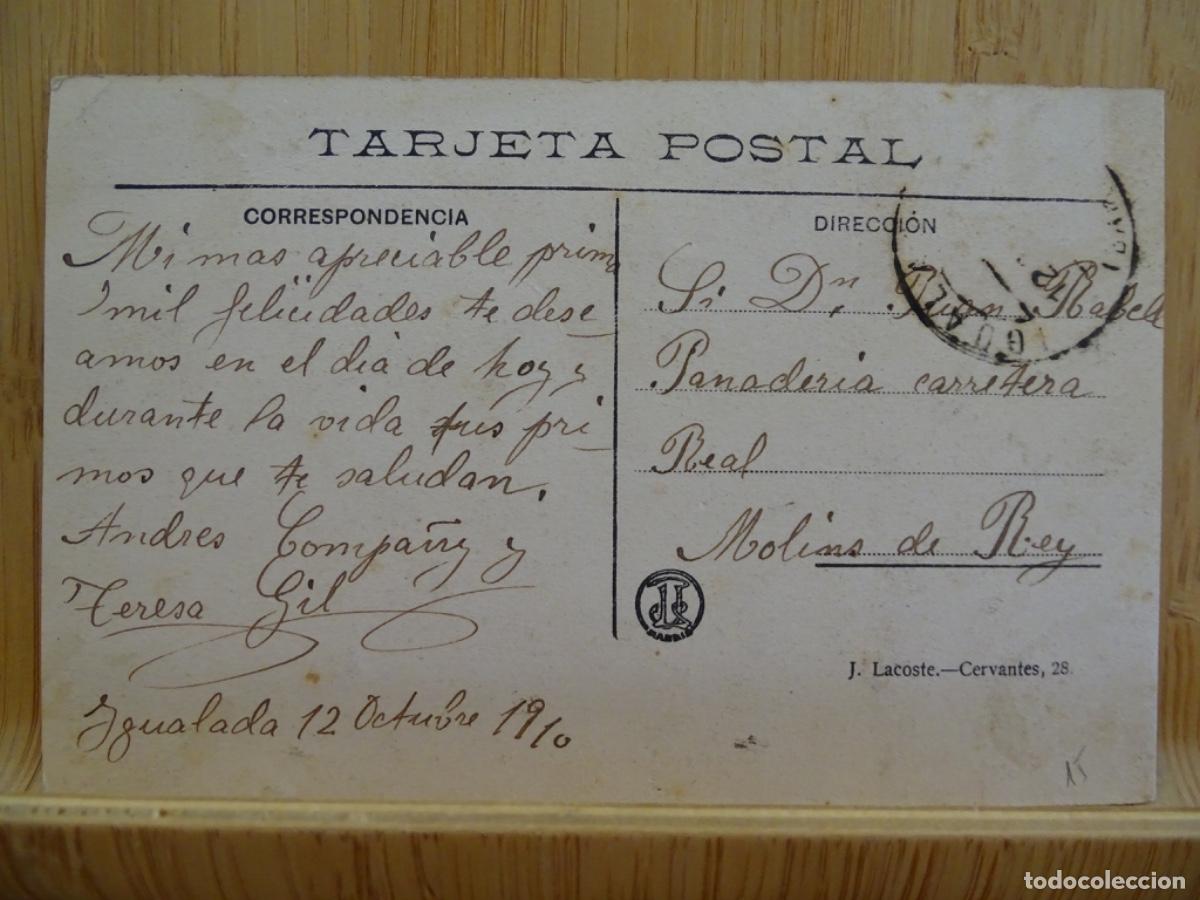 TARJETA POSTAL
CORRESPONDENCIA
Mi mas apreciable primo
mil felicidades te dese-
amos en el dia de hoy y
durante la vida tus pri-
mos que te saludan.
Andres Compañy y
Teresa Gil
Igualada 12 Octubre 1910
DIRECCIÓN
Sr Dn Juan Rabell
Panaderia carretera
Real
Molins de Rey
MADRID
J. Lacoste.—Cervantes, 28.
15
todocoleccion